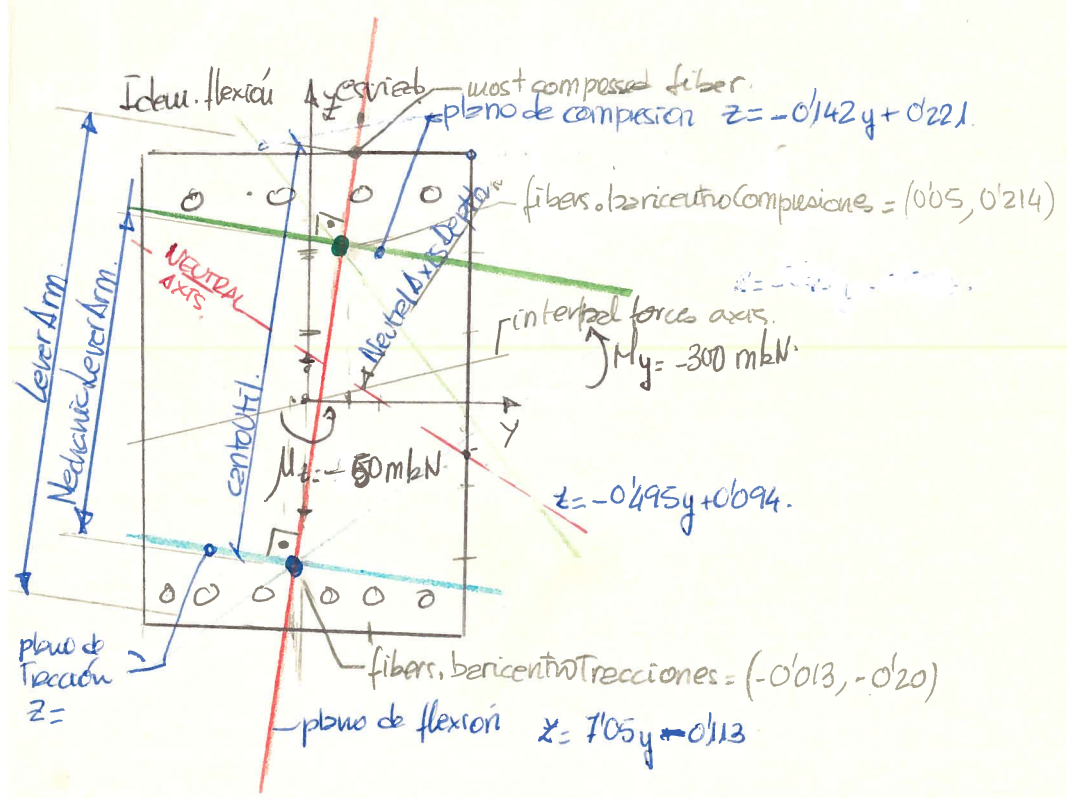 Idem. flexión esviada
most compessed fiber.
z
plano de compresion z=-0'142y+0'221
fibers.baricentroCompresiones = (0'05, 0'214)
NEUTRAL
AXIS
Neutral Axis Depth
Lever Arm.
Mechanic Lever Arm.
CantoUtil.
internal forces axis.
My = -300 mkN.
y
Mz = -50 mkN
z=-0'495y+0'094.
plano de
Tracción
z=
fibers.baricentroTracciones = (-0'013, -0'20)
plano de flexión z= 7'05y-0'113